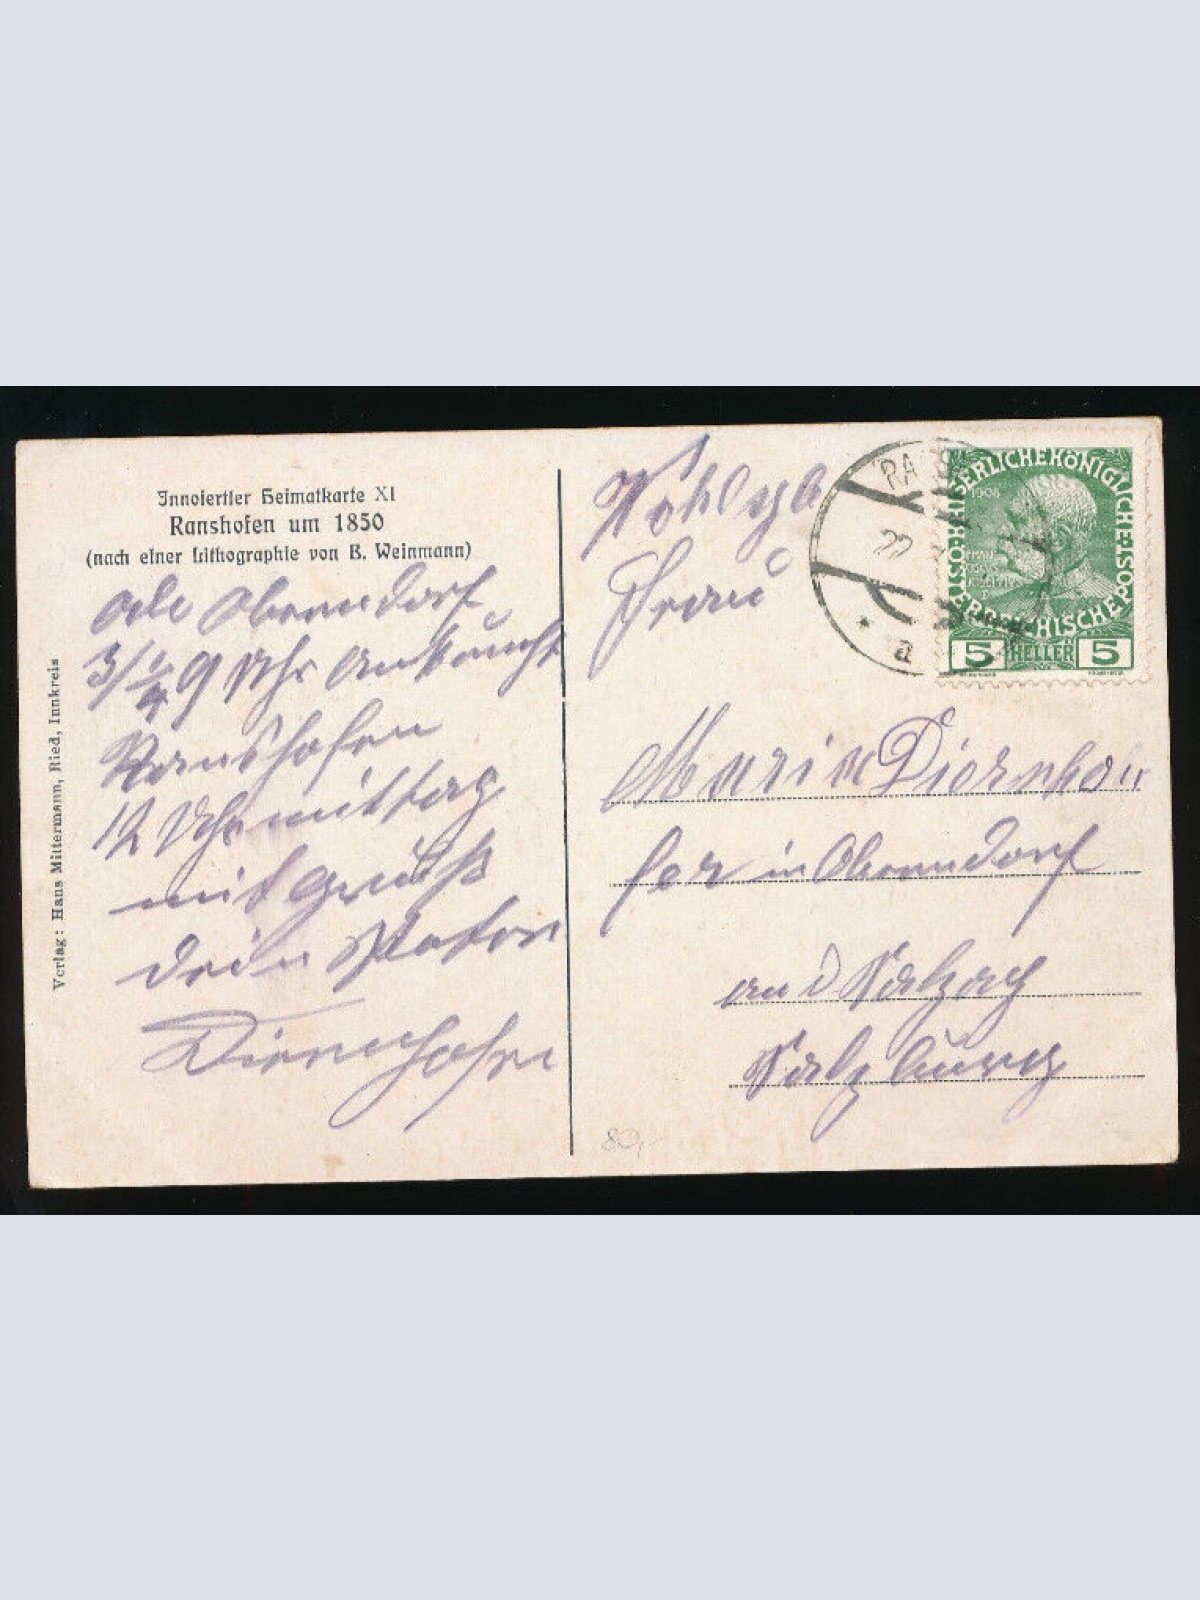 Innviertler Heimatkarte XI
Ranshofen um 1850
(nach einer Lithographie von B. Weinmann)
Verlag: Hans Mittermann, Ried, Innkreis
Oberndorf
3/4 9 Uhr Ankunft
Ranshofen
12 Uhr mittag
mit Gruß
dein Vater
Diernhofer
Frau
Maria Diernho
fer in Oberndorf
an d Salzach
Salzburg
RA
22
* a
KAISERLICHE KÖNIGLICHE
ÖSTERREICHISCHE POST
1908
5 HELLER 5
80,-